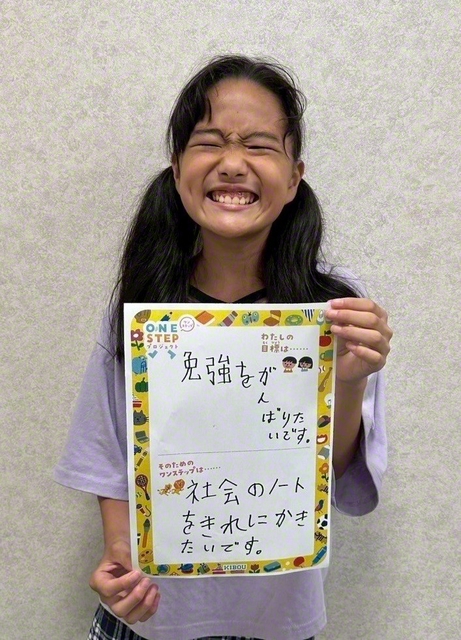 ONE
STEP
プロジェクト
わたしの
目標は……
勉強をが
ん
ばりた
いです。
そのための
ワンステップは……
社会のノート
をきれいにかき
たいです。
KIBOU